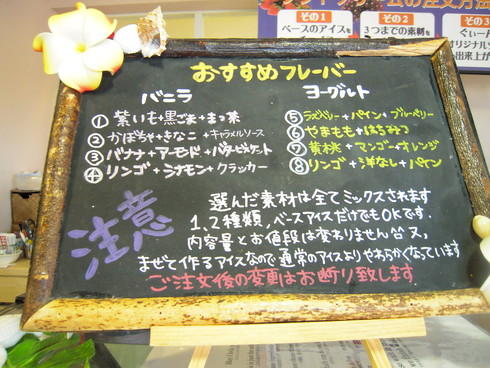 その1
その2
その3
ベースのアイスを
3つまでの素材を
オリジナル
出来上が
おすすめフレーバー
バニラ
ヨーグルト
①紫いも+黒ごま+まっ茶
②かぼちゃ+きなこ+キャラメルソース
③バナナ+アーモンド+バタービスケット
④リンゴ+シナモン+クラッカー
⑤ラズベリー+パイン+ブルーベリー
⑥やまもも+はちみつ
⑦黄桃+マンゴー+オレンジ
⑧リンゴ+洋なし+パイン
注意
選んだ素材は全てミックスされます
1、2種類、ベースアイスだけでもOKです。
内容量とお値段は変わりません。又、
まぜて作るアイスなので通常のアイスよりやわらかくなっています
ご注文後の変更はお断り致します